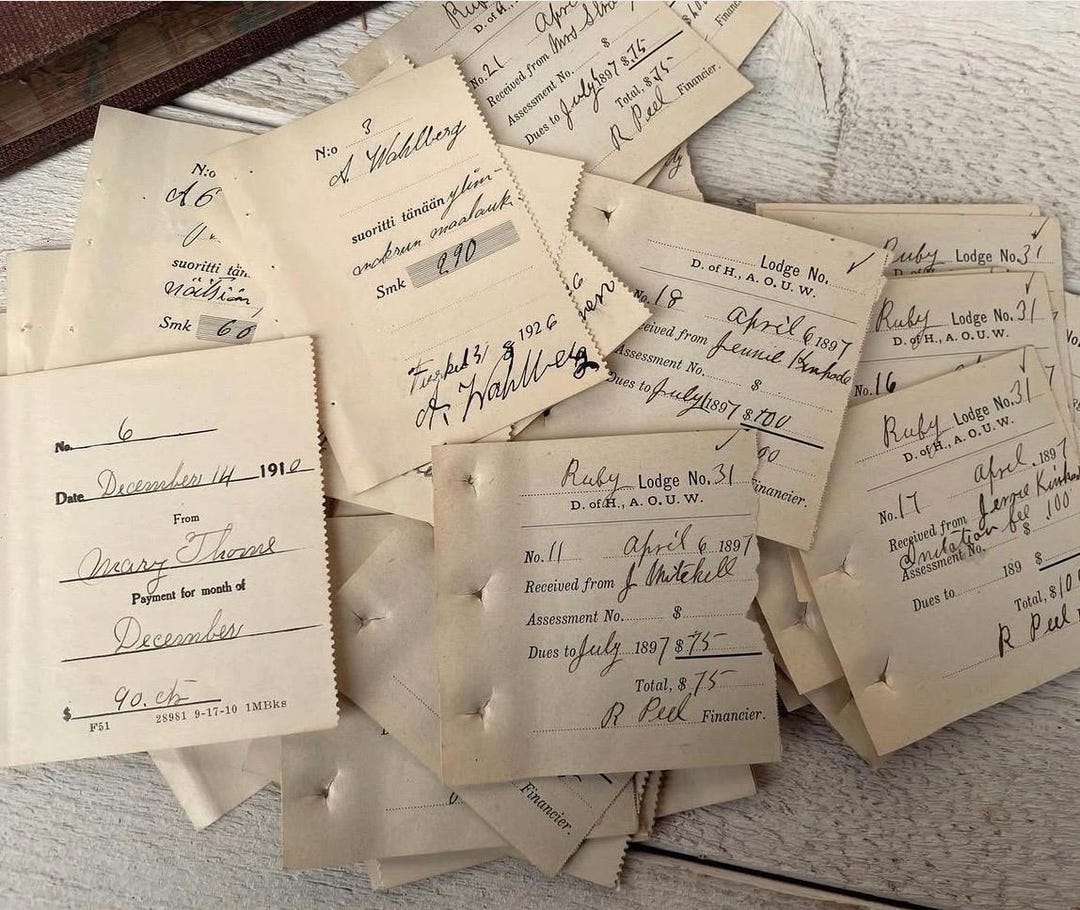 April
D. of H.
No. 21
Received from Mrs
$
Assessment No.
Dues to July 1897 $.75
Total, $.75
R Peel Financier.
Financ
N:o 3
A. Wahlberg
suoritti tänään ylim-
maalauk.
Smk 290
31 8 1926
A. Wahlberg
N:o
suoritti tän
Smk 60
Lodge No.
D. of H., A. O. U. W.
No. 18 April 6 1897
eceived from Jennie
Assessment No. $
Dues to July 1897 $ .100
00
inancier.
Ruby Lodge No. 31
D. of H.
Ruby Lodge No. 31
D. of H., A. O. U. W.
No. 16
Ruby Lodge No. 31
D. of H., A. O. U. W.
No. 17 April 1897
Received from Jennie
Initation fee .100
Assessment No. $
Dues to 189 $
Total, $
R Peel
No. 6
Date December 14 1910
From
Mary Thorne
Payment for month of
December
$ 90. cts
F51 28981 9-17-10 1MBks
Ruby Lodge No. 31
D. of H., A. O. U. W.
No. 11 April 6 1897
Received from J Mitchell
Assessment No. $
Dues to July 1897 $ 75
Total, $ 75
R Peel Financier.
Financier.